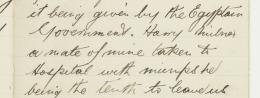 it being given by the Egyptain
Government. Harry Milner
a mate of mine taken to
Hospital with mumps he
being the tenth to leave us